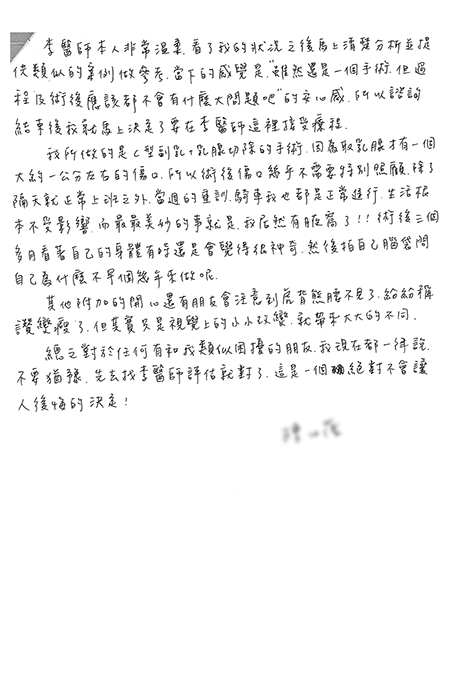 李醫師本人非常溫柔，看了我的狀況之後馬上清楚分析並提
供類似的案例做參考，當下的感覺是"雖然還是一個手術，但過
程及術後應該都不會有什麼大問題吧"的安心感，所以諮詢
結束後我就馬上決定了要在李醫師這裡接受療程。
我所做的是C型副乳+乳腺切除的手術，因為取乳腺才有一個
大約一公分左右的傷口，所以術後傷口幾乎不需要特別照顧，除了
隔天就正常上班之外，當週的重訓、騎車我也都是正常進行，生活根
本不受影響，而最最美妙的事就是，我居然有腋窩了!!術後三個
多月看著自己的身體有時還是會覺得很神奇，然後拍自己腦袋問
自己為什麼不早個幾年來做呢。
其他附加的開心還有朋友會注意到虎背熊腰不見了，紛紛稱
讚變瘦了，但其實只是視覺上的小小改變，就帶來大大的不同。
總之對於任何有和我類似困擾的朋友，我現在都一律說，
不要猶豫，先去找李醫師評估就對了，這是一個絕對不會讓
人後悔的決定!